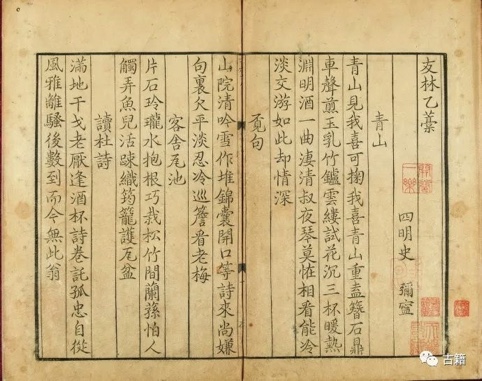 友林乙藁
四明史 彌寧
青山
青山見我喜可掬我喜青山重盍簪石鼎
車聲煎玉乳竹鑪雲縷試花沉三杯暖熱
淵明酒一曲淒清叔夜琴莫怪相看能冷
淡交游如此却情深
覓句
山院清吟雪作堆錦囊開口等詩來尚嫌
句裏欠平淡忍冷巡簷看老梅
客舍瓦池
片石玲瓏水抱根巧栽松竹間蘭蓀怕人
觸弄魚兒活踈織筠籠護瓦盆
讀杜詩
滿地干戈老厭逢酒杯詩卷託孤忠自從
風雅離騷後數到而今無此翁
古籍